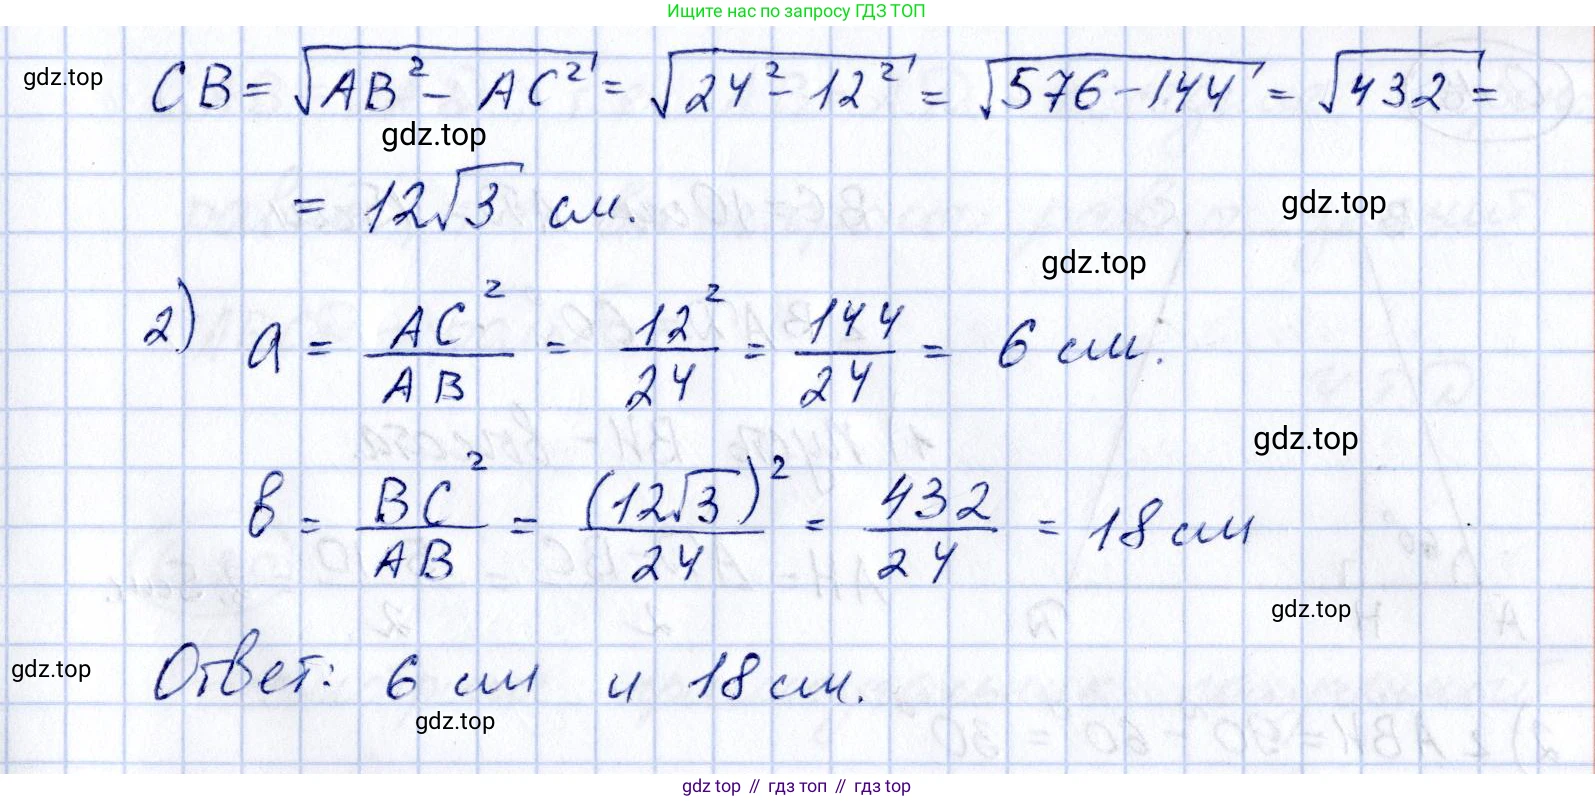 Ищите нас по запросу ГДЗ ТОП
gdz.top
CB = √(AB² - AC²) = √(24² - 12²) = √(576 - 144) = √432 =
gdz.top
= 12√3 см.
gdz.top
gdz.top
2) a = AC²/AB = 12²/24 = 144/24 = 6 см.
gdz.top
в = BC²/AB = (12√3)²/24 = 432/24 = 18 см
gdz.top
gdz.top
Ответ: 6 см и 18 см.
gdz.top
gdz top // гдз топ // gdz top